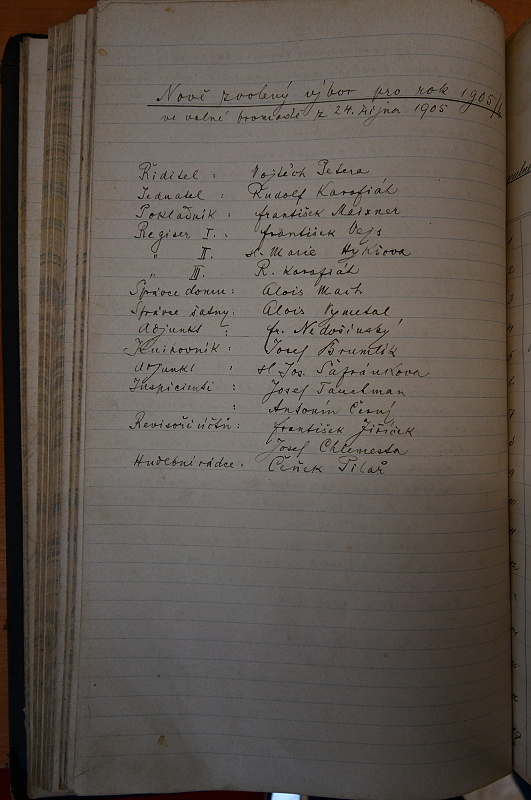 Nově zvolený výbor pro rok 1905/6
ve valné hromadě z 24. října 1905
Ředitel : Vojtěch Petera
Jednatel : Rudolf Karafiát
Pokladník : František Meixner
Regiser I. : František Vejs
" II. sl. Marie Hykšova
" III. R. Karafiát
Správce domu: Alois Mach
Správce šatny: Alois Vymetal
Adjunkt : Fr. Nedošinský
Knihovník : Josef Brumlik
Adjunkt : sl. Jos. Šafránkova
Inspicienti : Josef Tauchman
: Antonín Černý
Revisoři účtů: František Jiřiček
Josef Chlemesta
Hudební rádce. Čeněk Pilař